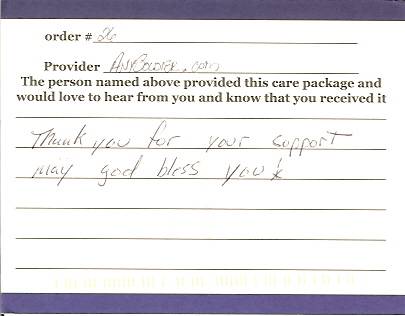 order # 26
Provider AnySoldier.com
The person named above provided this care package and
would love to hear from you and know that you received it
Thank you for your support
may god bless you